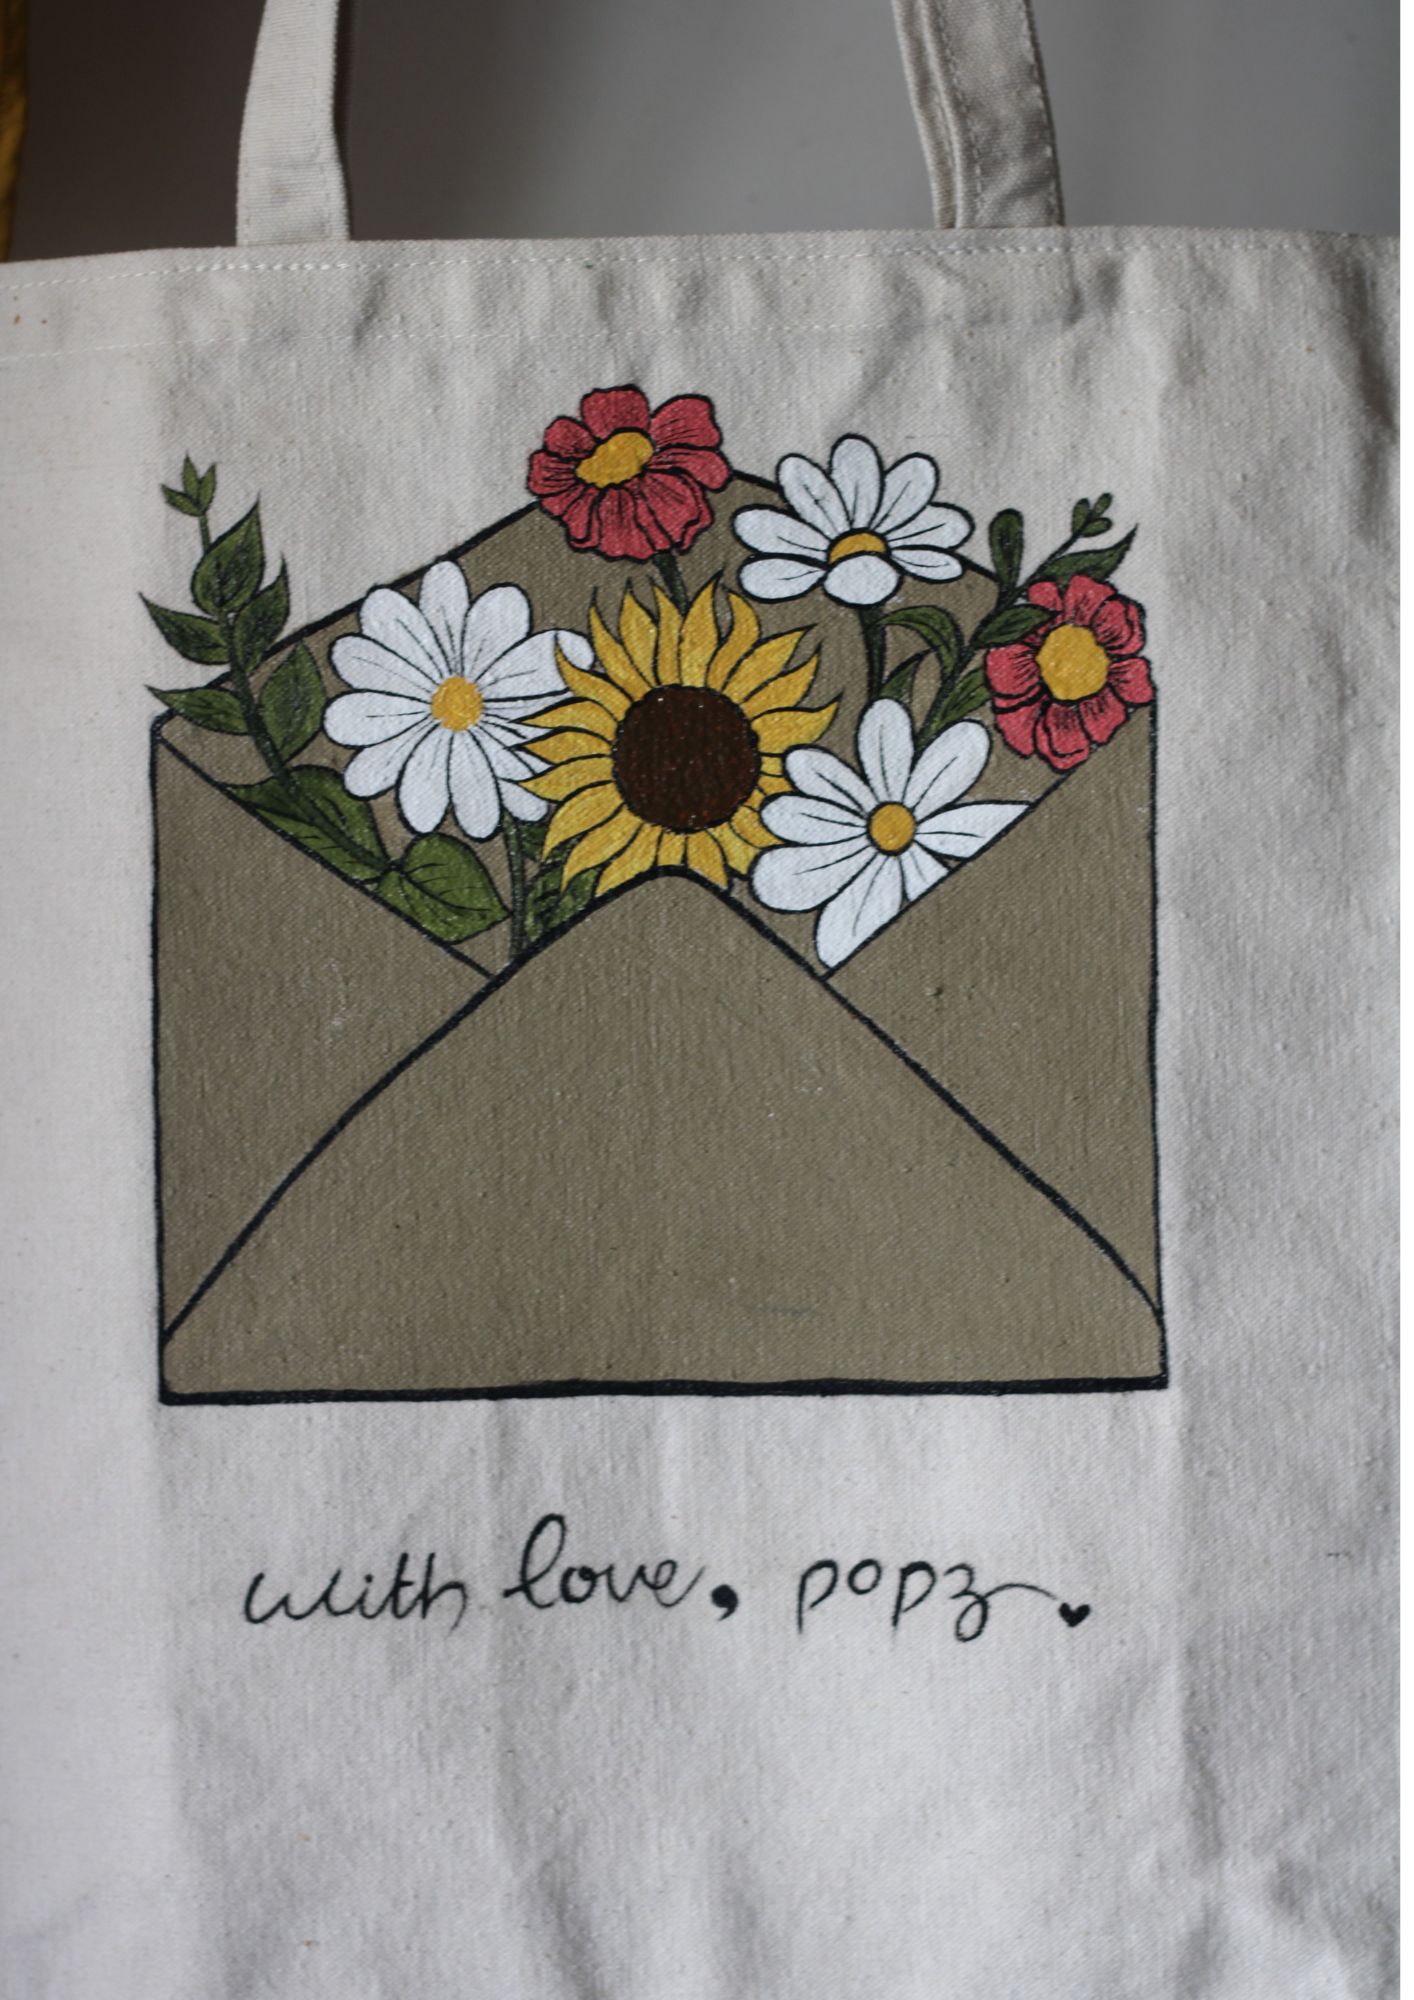 with love, popz